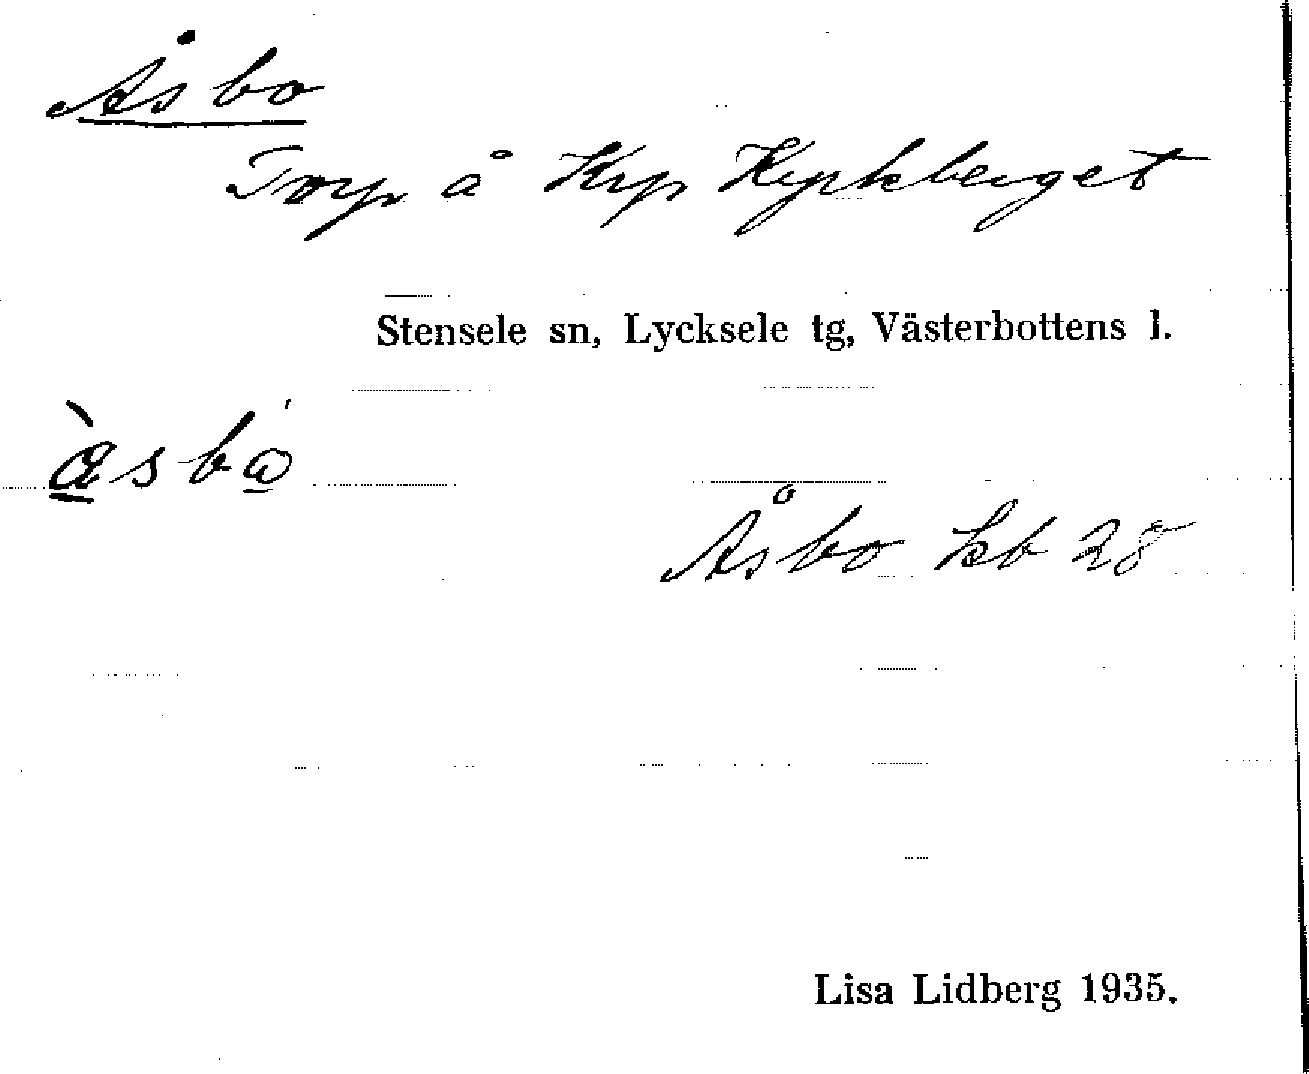 Åsbo
Torp å Krp Kyrkberget
Stensele sn, Lycksele tg, Västerbottens l.
Åsbo kb 28
Lisa Lidberg 1935.